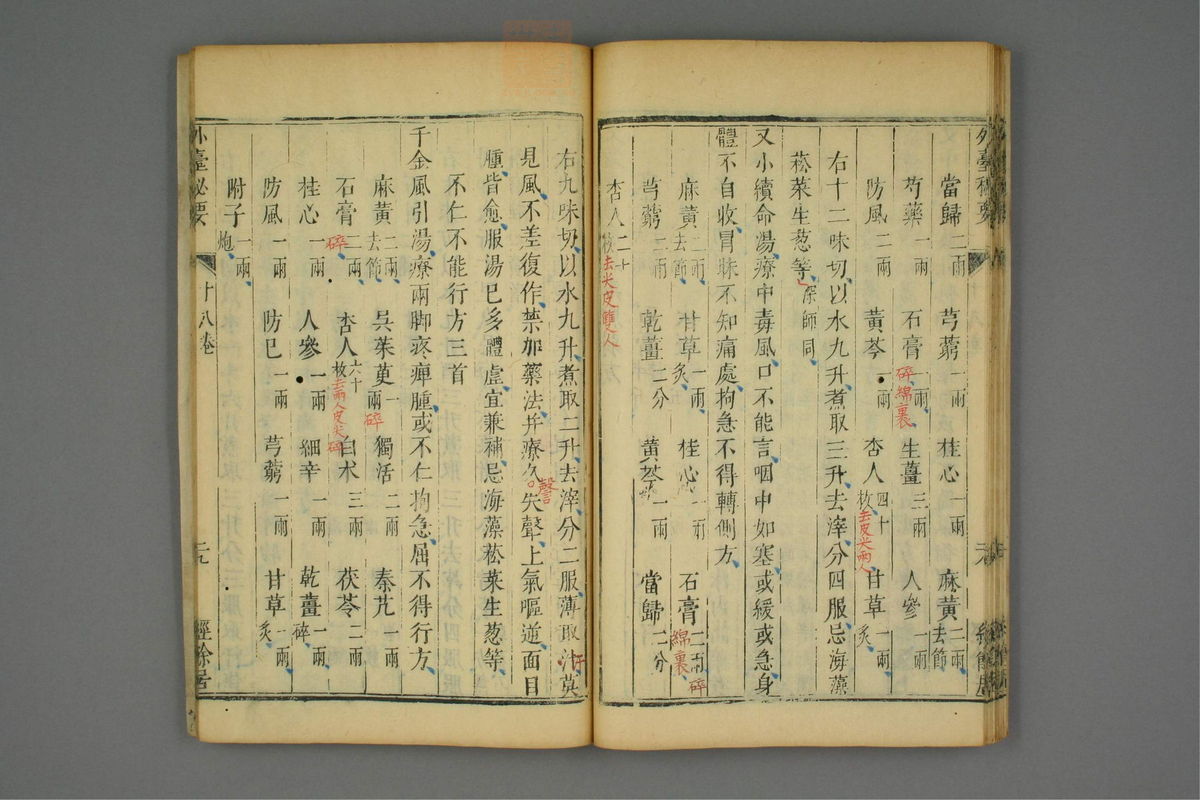 當歸二兩 芎藭一兩 桂心一兩 麻黃二兩去節
芍藥一兩 石膏一兩碎綿裹 生薑三兩 人參一兩
防風二兩 黃芩一兩 杏人四十枚去皮尖兩人 甘草一兩炙
右十二味切以水九升煮取三升去滓分四服忌海藻
菘菜生葱等深師同
又小續命湯療中毒風口不能言咽中如塞或緩或急身
體不自收冒昧不知痛處拘急不得轉側方
麻黃二兩去節 甘草一兩炙 桂心一兩 石膏二兩碎綿裹
芎藭二兩 乾薑二分 黃芩一兩 當歸二分
杏人二十枚去尖皮雙人
右九味切以水九升煮取二升去滓分二服薄取汗莫
見風不差復作禁加藥法并療久失聲上氣嘔逆面目
腫皆愈服湯巳多體虛宜兼補忌海藻菘菜生葱等
不仁不能行方三首
千金風引湯療兩脚疼痺腫或不仁拘急屈不得行方
麻黃二兩去節 吳茱萸一兩碎 獨活二兩 秦艽一兩
石膏二兩碎 杏人六十枚去兩人皮尖碎 白术三兩 茯苓二兩
桂心一兩 人參一兩 細辛一兩 乾薑一兩碎
防風一兩 防巳一兩 芎藭一兩 甘草一兩炙
附子一兩炮
外臺秘要 十八卷 二九 經餘居